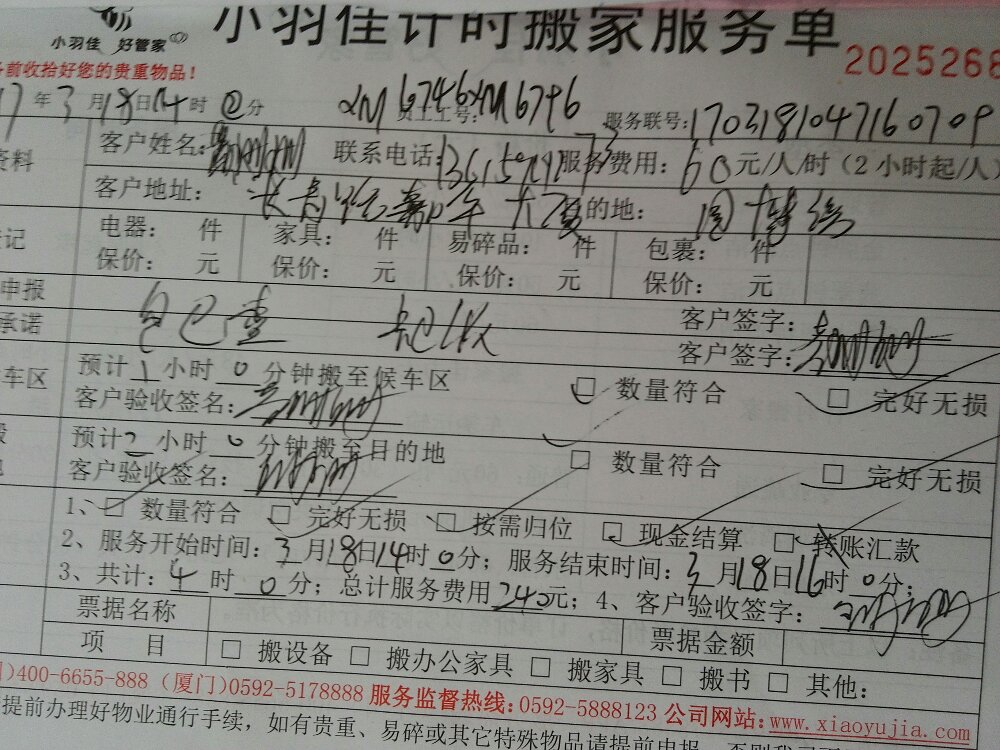 小羽佳 好管家
小羽佳计时搬家服务单
前收拾好您的贵重物品！
2025266
7年3月18日14时0分 员工工号: XM6746XM6796 服务联号:1703181047160709
资料
客户姓名: 联系电话: 服务费用: 60元/人/时（2小时起/人）
客户地址: 长青路嘉年大厦 目的地:
登记
电器: 件 家具: 件 易碎品: 件 包裹: 件
保价: 元 保价: 元 保价: 元 保价: 元
申报
客户签字:
承诺
客户签字:
车区
预计1小时0分钟搬至候车区 □ 数量符合 □ 完好无损
客户验收签名:
预计2小时0分钟搬至目的地 □ 数量符合 □ 完好无损
客户验收签名:
1、□ 数量符合 □ 完好无损 □ 按需归位 □ 现金结算 □ 转账汇款
2、服务开始时间: 3月18日14时0分; 服务结束时间: 3月18日16时0分;
3、共计: 4时0分; 总计服务费用240元; 4、客户验收签字:
票据名称 票据金额
项 目 □ 搬设备 □ 搬办公家具 □ 搬家具 □ 搬书 □ 其他:
)400-6655-888 (厦门)0592-5178888 服务监督热线:0592-5888123 公司网站:www.xiaoyujia.com
提前办理好物业通行手续，如有贵重、易碎或其它特殊物品请提前申报，否则我司不